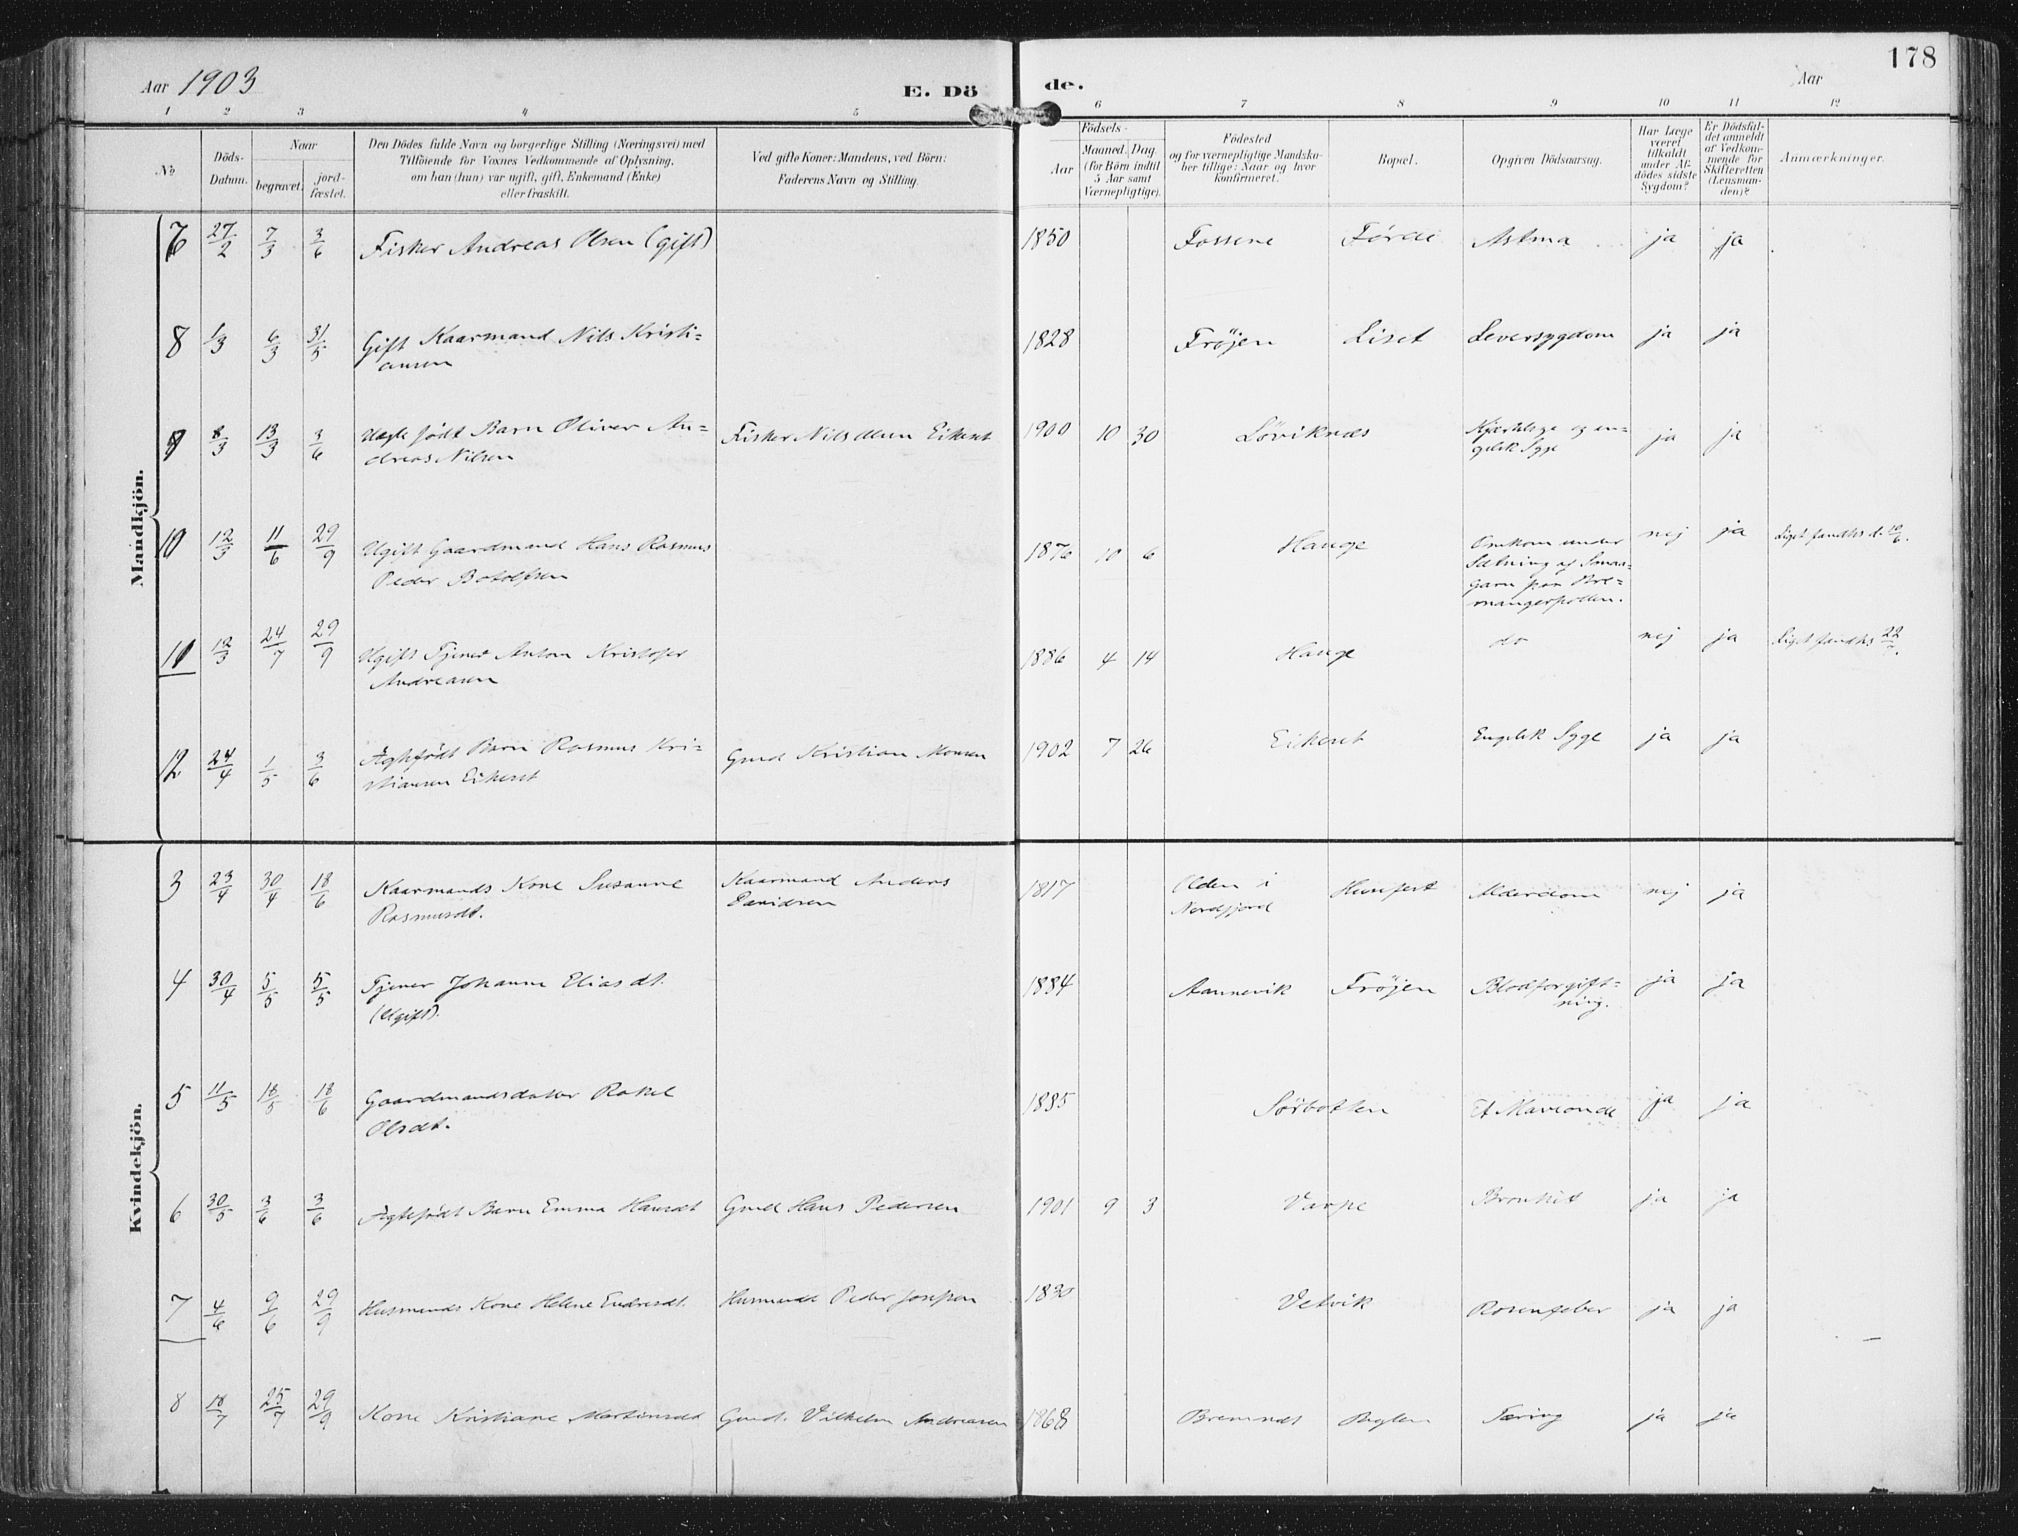 Aar 1903
E. Dö
de.
Aar
178
1 2 3 4 5 6 7 8 9 10 11 12
No
Döds-
Datum.
Naar
begravet.
jord-
fæstet.
Den Dödes fulde Navn og borgerlige Stilling (Næringsvei) med
Tilföiende for Voxnes Vedkommende af Oplysning,
om han (hun) var ugift, gift, Enkemand (Enke)
eller fraskilt.
Ved gifte Koner: Mandens, ved Börn:
Faderens Navn og Stilling.
Födsels-
Aar
Maaned. Dag.
(for Börn indtil
5 Aar samt
Værnepligtige).
Födested
og for værnepligtige Mandska-
ber tillige: Naar og hvor
konfirmeret.
Bopæl.
Opgiven Dödsaarsag.
Har Læge
været
tilkaldt
under Af-
dödes sidste
Sygdom?
Er Dödsfal-
det anmeldt
af Vedkom-
mende for
Skifteretten
(Lensman-
den)?
Anmærkninger.
Mandkjön.
7 27/2 7/3 3/6 Fisker Andreas Olsen (gift) 1850 Fossene Förde Astma ja ja
8 1/3 6/3 31/5 Gift Kaarmand Nils Kristi=
ansen 1828 Fröjen Liset Leversygdom ja ja
9 8/3 13/3 3/6 Uægte født Barn Oliver An=
dreas Nilsen Fisker Nils Olsen Eikeset 1900 10 30 Löviknæs ja ja
engelsk Syge
10 12/3 11/6 29/9 Ugift Gaardmand Hans Rasmus
Peder Botolfsen 1876 10 6 Hauge Omkom under
Sætning af Smaa-
garn paa Bre=
mangerpollen. nej ja Liget fandtes d. 10/6.
11 12/3 24/7 29/9 Ugift Tjener Anton Kristofer
Andreasen 1886 4 14 Hauge do nej ja Liget fandtes 22/7.
12 24/4 1/5 3/6 Ægtefødt Barn Rasmus Kri-
stiansen Eikeset Gmd Kristian Monsen 1902 7 26 Eikeset Engelsk Syge ja ja
Kvindekjön.
3 23/4 30/4 18/6 Kaarmands Kone Susanne
Rasmusdt. Kaarmand Anders
Davidsen 1817 Olden i
Nordfjord Alderdom nej ja
4 30/4 5/5 5/5 Tjener Johanne Eliasdt.
(Ugift). 1884 Aannevik Fröjen Blodforgift-
ning. ja ja
5 11/5 18/5 18/6 Gaardmandsdatter Rakel
Olsdt. 1885 Sörbotten ja ja
6 30/5 3/6 3/6 Ægtefødt Barn Emma Hansdt Gmd Hans Pedersen 1901 9 3 Varpe Bronkit ja ja
7 4/6 9/6 29/9 Husmands Kone Helene Endresdt. Husmand Peder Josefsen 1830 Vetvik Rosenfeber ja ja
8 18/7 25/7 29/9 Kone Kristiane Martinsdt Gmd. Vilhelm Andreasen 1868 Bremnæs Tæring ja ja